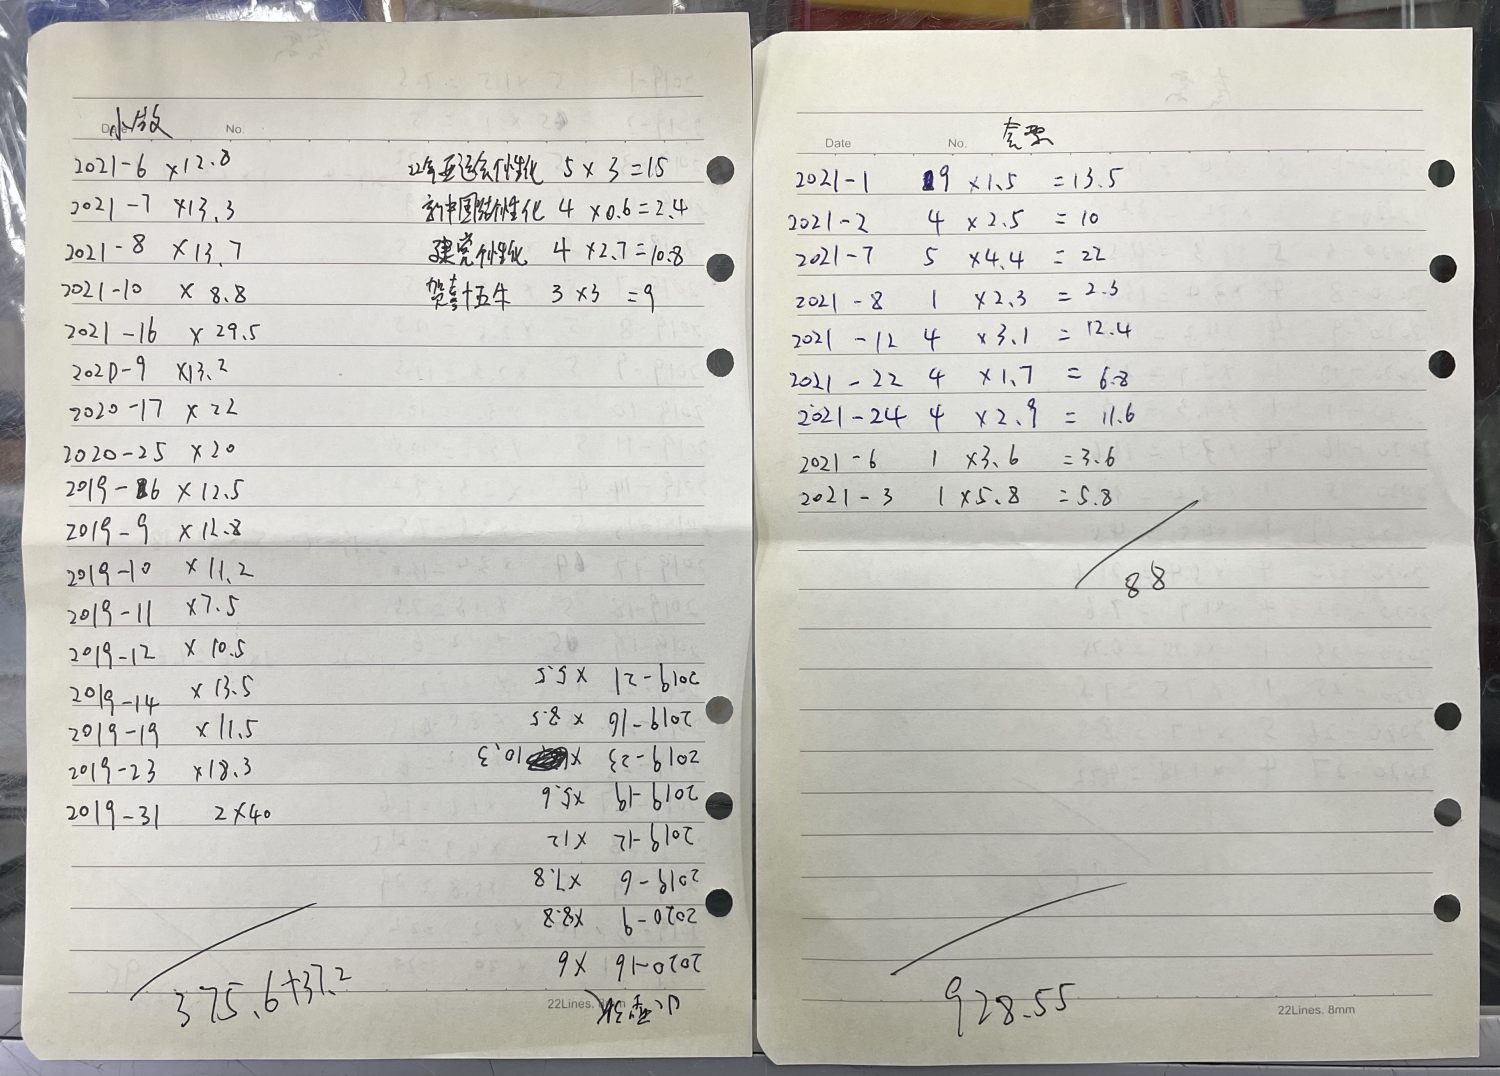 小版
Date No.
2021-6 ×12.8
2021-7 ×13.3
2021-8 ×13.7
2021-10 ×8.8
2021-16 ×29.5
2020-9 ×13.2
2020-17 ×22
2020-25 ×20
2019-16 ×12.5
2019-9 ×12.8
2019-10 ×11.2
2019-11 ×7.5
2019-12 ×10.5
2019-14 ×13.5
2019-19 ×11.5
2019-23 ×18.3
2019-31 2×40
375.6+37.2
22年亚运会个性化 5×3=15
新中国结个性化 4×0.6=2.4
建党个性化 4×2.7=10.8
贺喜十五牛 3×3=9
2020-16 ×6
2020-9 ×8.8
2019-6 ×7.8
2019-12 ×12
2019-19 ×5.6
2019-23 ×10.3
2019-16 ×8.5
2019-21 ×5.5
22Lines. 8mm
Date No. 套票
2021-1 9 ×1.5 =13.5
2021-2 4 ×2.5 =10
2021-7 5 ×4.4 =22
2021-8 1 ×2.3 =2.3
2021-12 4 ×3.1 =12.4
2021-22 4 ×1.7 =6.8
2021-24 4 ×2.9 =11.6
2021-6 1 ×3.6 =3.6
2021-3 1 ×5.8 =5.8
88
928.55
22Lines. 8mm